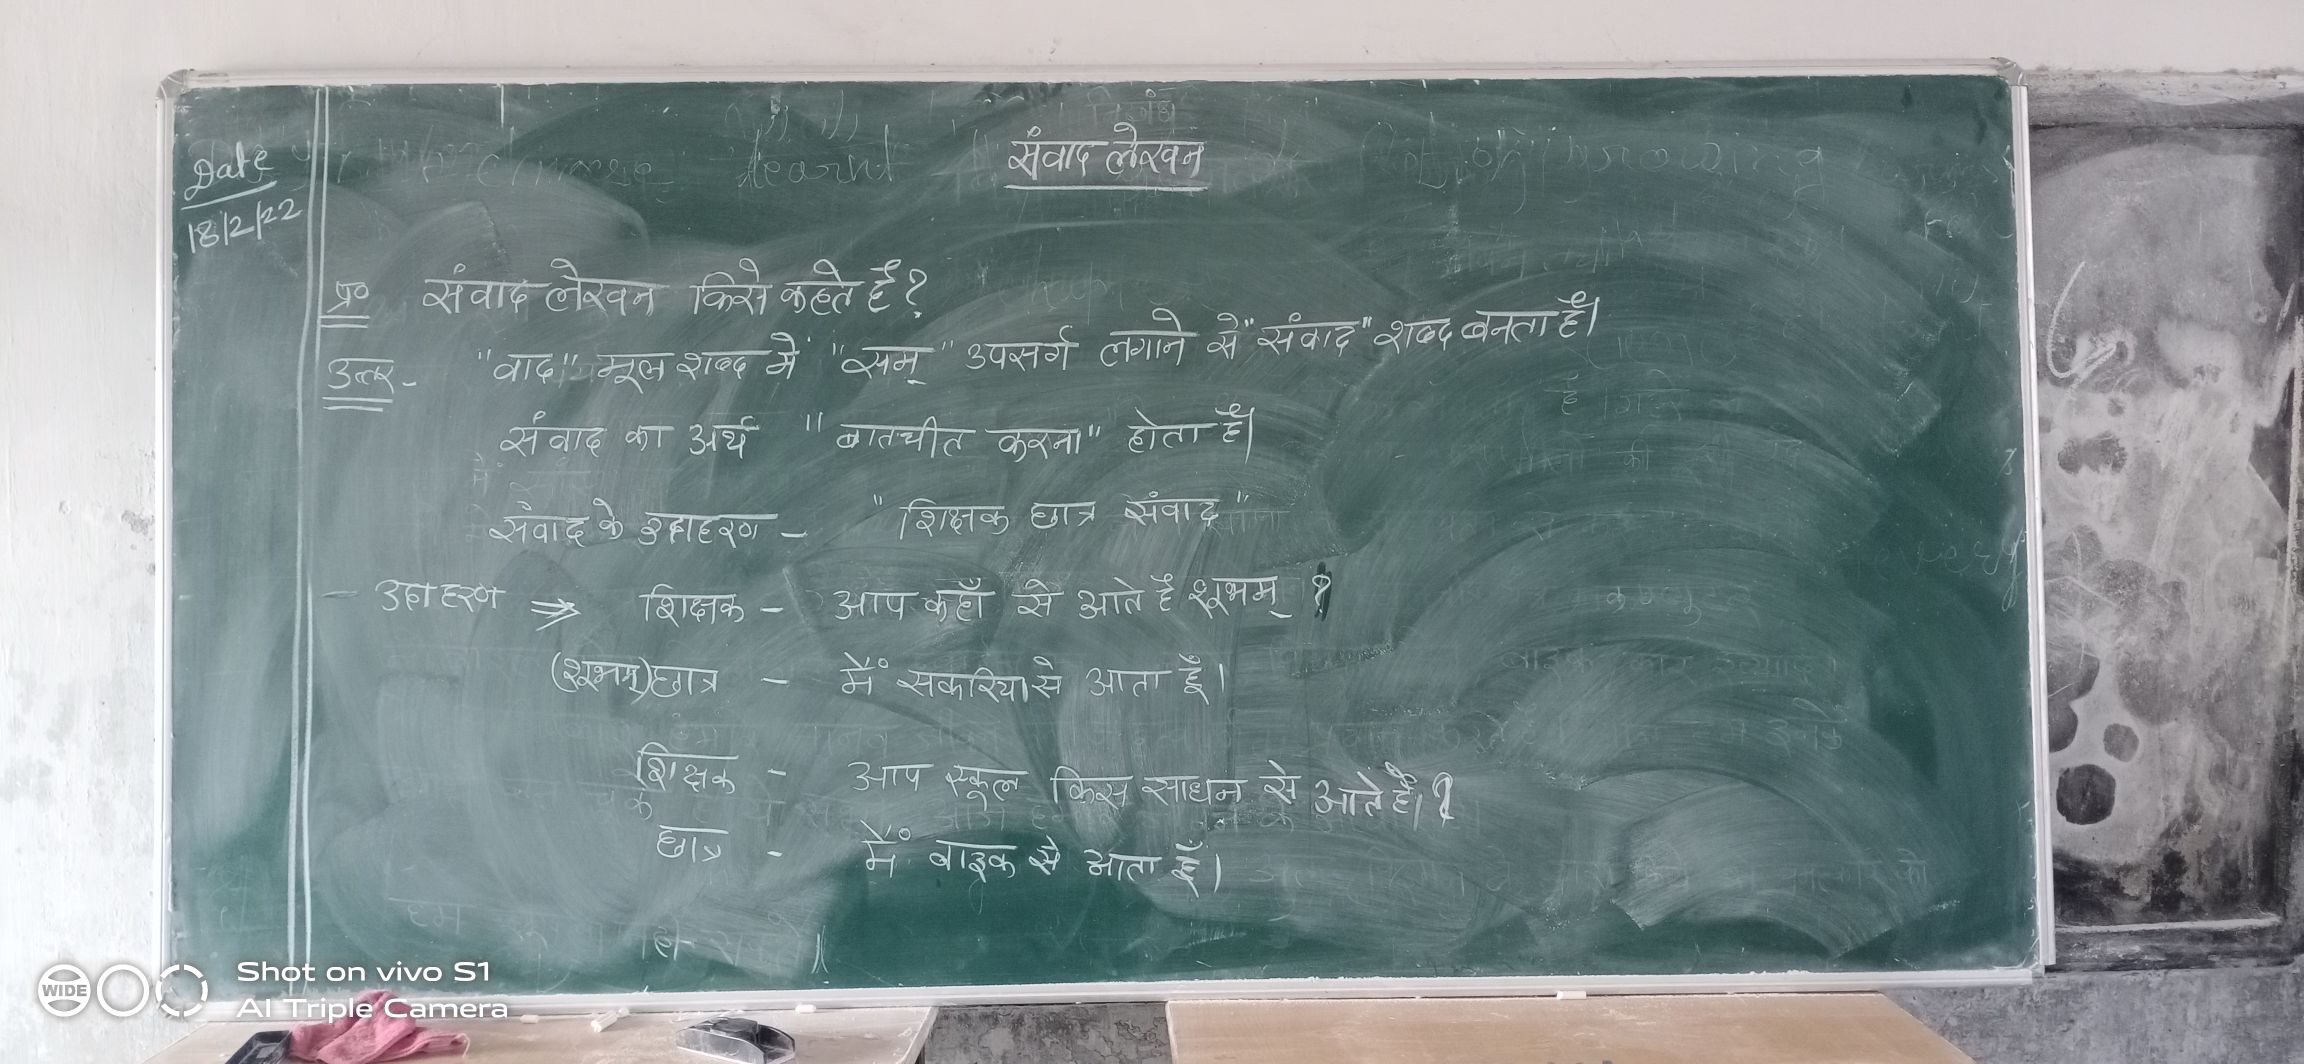 संवाद लेखन
Date
18/2/22
प्र० संवाद लेखन किसे कहते हैं?
उत्तर- "वाद" मूल शब्द में "सम्" उपसर्ग लगाने से "संवाद" शब्द बनता है।
संवाद का अर्थ "बातचीत करना" होता है।
संवाद के उदाहरण - "शिक्षक छात्र संवाद"
- उदाहरण ⇒ शिक्षक - आप कहाँ से आते हैं शूभम् ?
(शूभम्) छात्र - मैं सकरिया से आता हूँ।
शिक्षक - आप स्कूल किस साधन से आते हैं। ?
छात्र - मैं बाइक से आता हूँ।
WIDE
Shot on vivo S1
AI Triple Camera